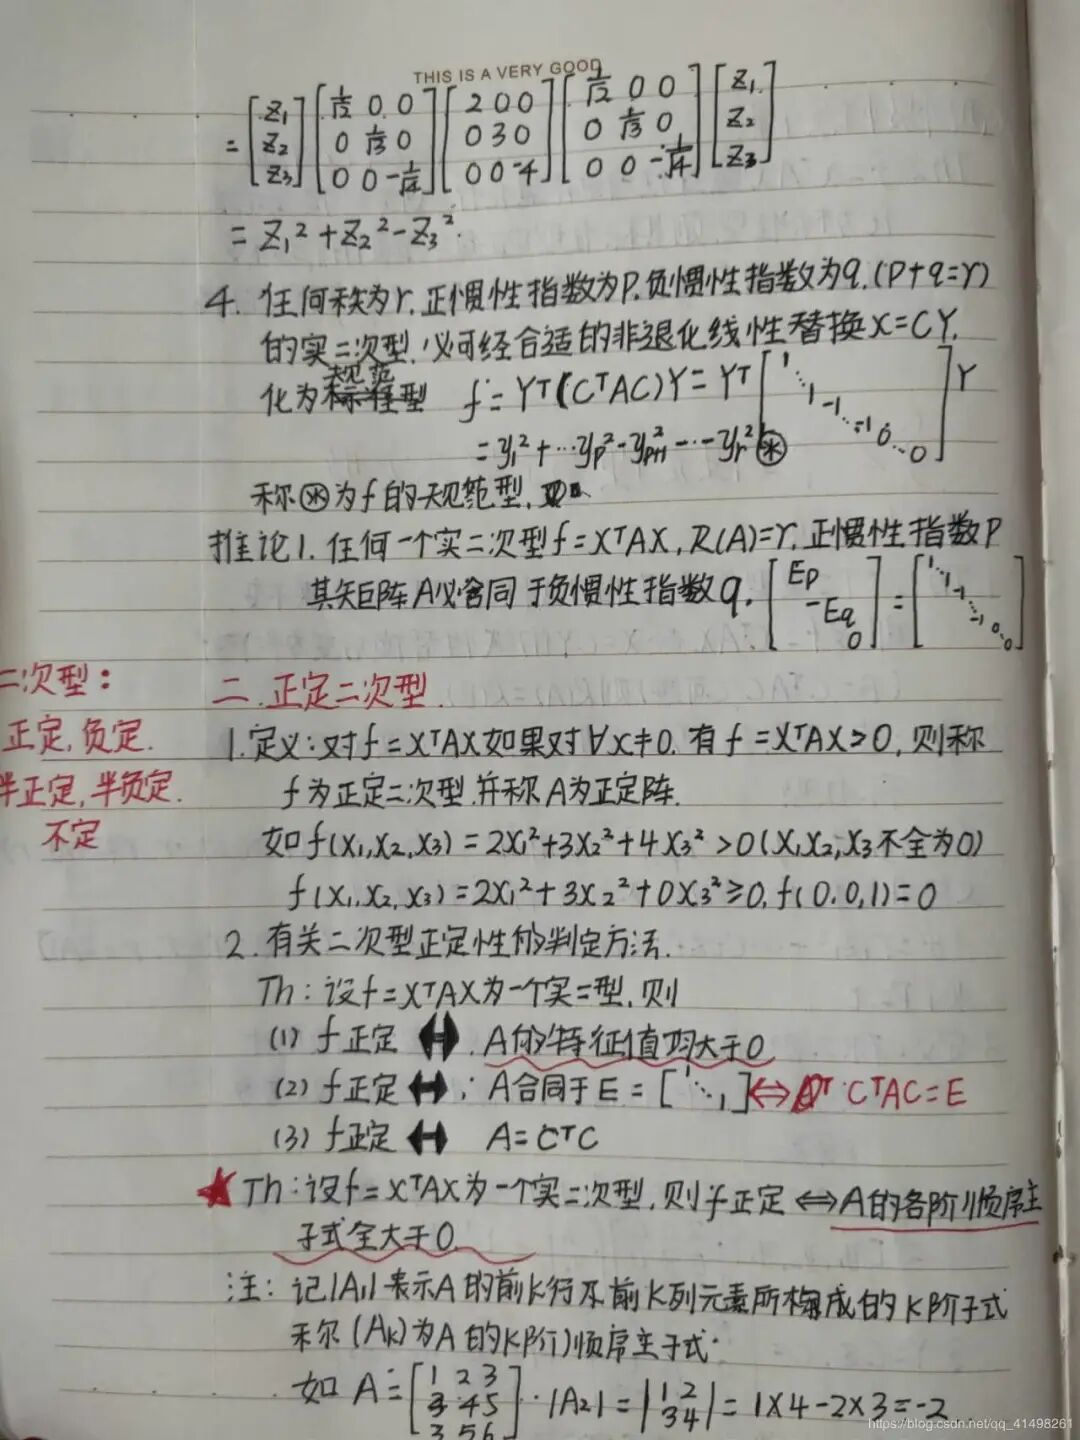 THIS IS A VERY GOOD
= [z₁ z₂ z₃] [1/√2 0 0; 0 1/√3 0; 0 0 -1/√4] [2 0 0; 0 3 0; 0 0 -4] [1/√2 0 0; 0 1/√3 0; 0 0 -1/√4] [z₁ z₂ z₃]
= z₁² + z₂² - z₃².
4. 任何秩为r.正惯性指数为p.负惯性指数为q.(p+q=r)
的实二次型.必可经合适的非退化线性替换X=CY.
规范
化为标准型 f = Yᵀ(CᵀAC)Y = Yᵀ [1 ⋱ 1 -1 ⋱ -1 0 ⋱ 0] Y
= y₁² + ⋯ yp² - y²p+1 - ⋯ - yr² ⊛
称⊛为f的规范型.
推论1. 任何一个实二次型f=XᵀAX, R(A)=r, 正惯性指数p
其矩阵A必合同于负惯性指数q. [Ep -Eq 0] = [1 ⋱ 1 -1 ⋱ -1 0 ⋱ 0]
二次型:
正定,负定.
半正定,半负定.
不定
二.正定二次型.
1.定义:对f=XᵀAX如果对∀x≠0.有f=XᵀAX>0,则称
f为正定二次型.并称A为正定阵.
如f(x₁,x₂,x₃)=2x₁²+3x₂²+4x₃²>0(x₁,x₂,x₃不全为0)
f(x₁,x₂,x₃)=2x₁²+3x₂²+0x₃²≥0,f(0,0,1)=0
2.有关二次型正定性的判定方法.
Th:设f=XᵀAX为一个实二型.则
(1) f正定 ⟺ A的特征值均大于0
(2) f正定 ⟺: A合同于E=[1 ⋱ 1] ⟺ CᵀAC=E
(3) f正定 ⟺ A=CᵀC
★Th:设f=XᵀAX为一个实二次型.则f正定 ⟺ A的各阶顺序主
子式全大于0
注: 记|A₁|表示A的前K行及前K列元素所构成的K阶子式
称(Ak)为A的K阶顺序主子式.
如 A=[1 2 3; 3 4 5; 3 5 6]. |A₂|=|1 2; 3 4|=1×4-2×3=-2
https://blog.csdn.net/qq_41498261